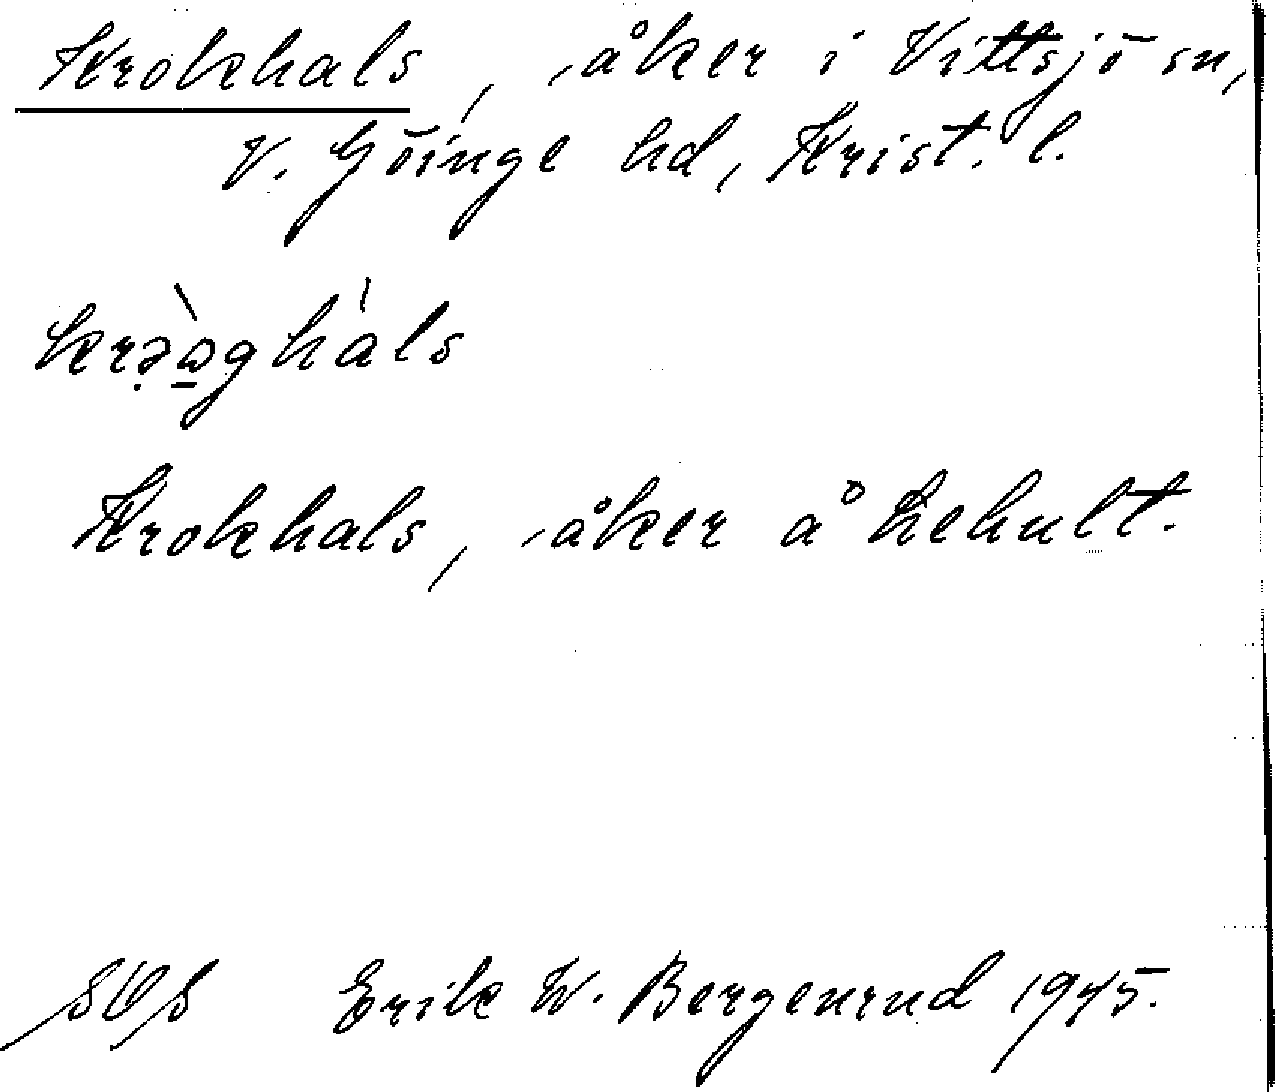 Krokhals, åker i Vittsjö sn,
V. Göinge hd, Krist. l.
krə̣ὼ̱ghàls
Krokhals, åker å Lehult.
SOS Erik W. Bergenrud 1945.